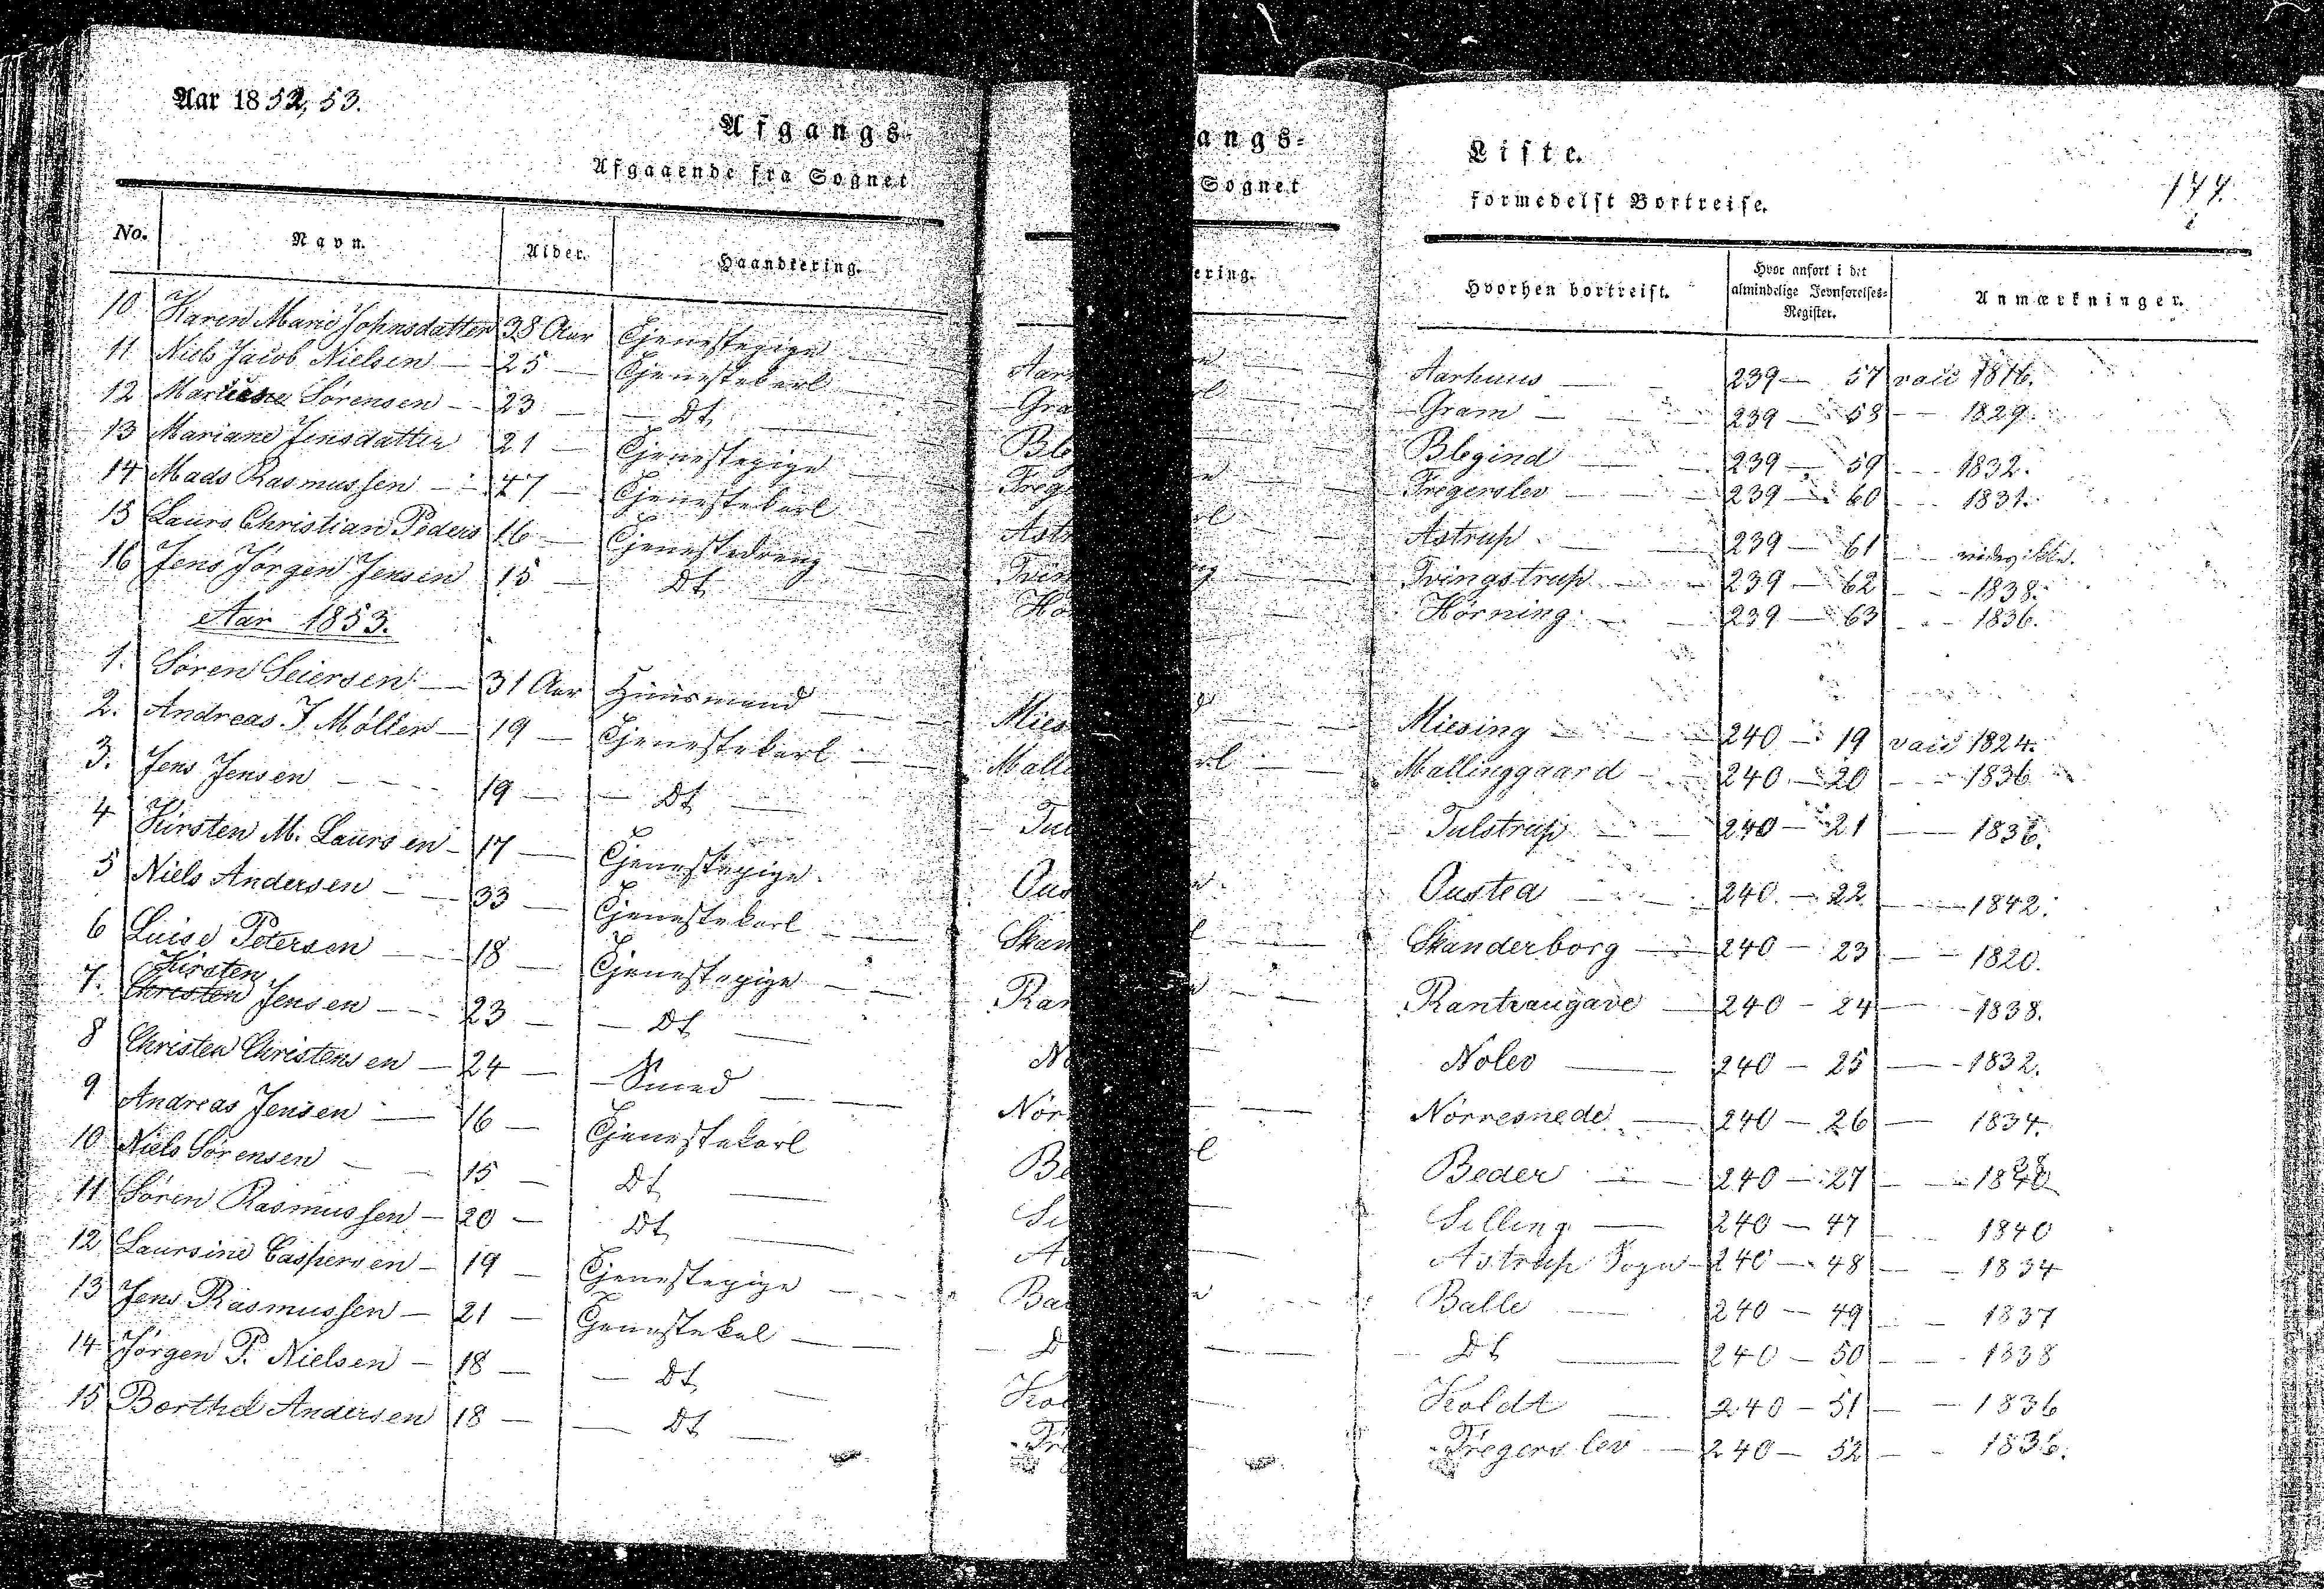 Aar 1852, 53.
Afgangs-
Afgaaende fra Sognet
No. Navn. Alder. Haandtering.
10 Karen Marie Johnsdatter 38 Aar Tjenestepige
11 Niels Jacob Nielsen 25 Tjenestekarl
12 Sørensen 23 Dt
13 Mariane Jensdatter 21 Tjenestepige
14 Mads Rasmussen 47 Tjenestekarl
15 Laurs Christian Peders 16 Tjenestedreng
16 Jens Jørgen Jensen 15 Dt
Aar 1853.
1. Søren Seiersen 31 Aar Huusmand
2. Andreas J Møller 19 Tjenestekarl
3. Jens Jensen 19 Dt
4 Kirsten M. Laursen 17 Tjenestepige
5 Niels Andersen 33 Tjenestekarl
6 Luise Petersen 18 Tjenestepige
Kirsten
7. Christen Jensen 23 Dt
8 Christen Christensen 24 Smed
9 Andreas Jensen 16 Tjenestekarl
10 Niels Sørensen 15 Dt
11 Søren Rasmussen 20 Dt
12 Laursine Caspersen 19 Tjenestepige
13 Jens Rasmussen 21 Tjenestekal
14 Jørgen P. Nielsen 18 Dt
15 Berthel Andersen 18 Dt
angs-
Sognet
ering.
Liste.
formedelst Bortreise.
144.
Hvorhen bortreist. Hvor anført i det almindelige Jevnførelses-Register. Anmærkninger.
Aarhuus 239 - 57 vacc 1816.
Gram 239 - 58 - 1829.
Blegind 239 - 59 - 1832.
Fregerslev 239 - 60 - 1831.
Astrup 239 - 61 - vides ikke.
Tvingstrup 239 - 62 - 1838.
Hørning 239 - 63 - 1836.
Miesing 240 - 19 vacc 1824.
Mallinggaard 240 - 20 - 1836
Tulstrup 240 - 21 - 1836.
Ousted 240 - 22 - 1842.
Skanderborg 240 - 23 - 1820.
Rantzaugave 240 - 24 - 1838.
Nølev 240 - 25 - 1832.
Nørresnede 240 - 26 - 1834.
38
Beder 240 - 27 - 1840
Silling 240 - 47 - 1840
Astrup Sogn 240 - 48 - 1834
Balle 240 - 49 - 1837
Dt 240 - 50 - 1838
Koldt 240 - 51 - 1836
Fregerslev 240 - 52 - 1836.